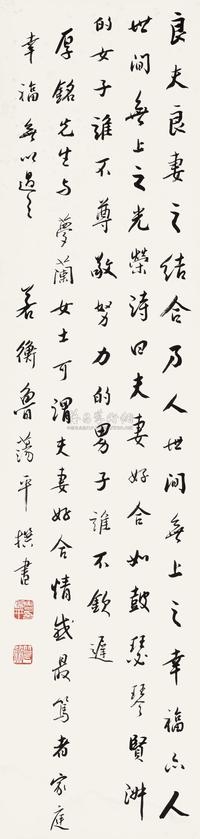 良夫良妻之结合乃人世间無上之幸福亦人
世间無上之光榮诗曰夫妻好合如鼓瑟琴賢淑
的女子誰不尊敬努力的男子誰不欽遲
厚銘先生与夢蘭女士可謂夫妻好合情感最篤者家庭
幸福無以過之 若衡魯蕩平撰書